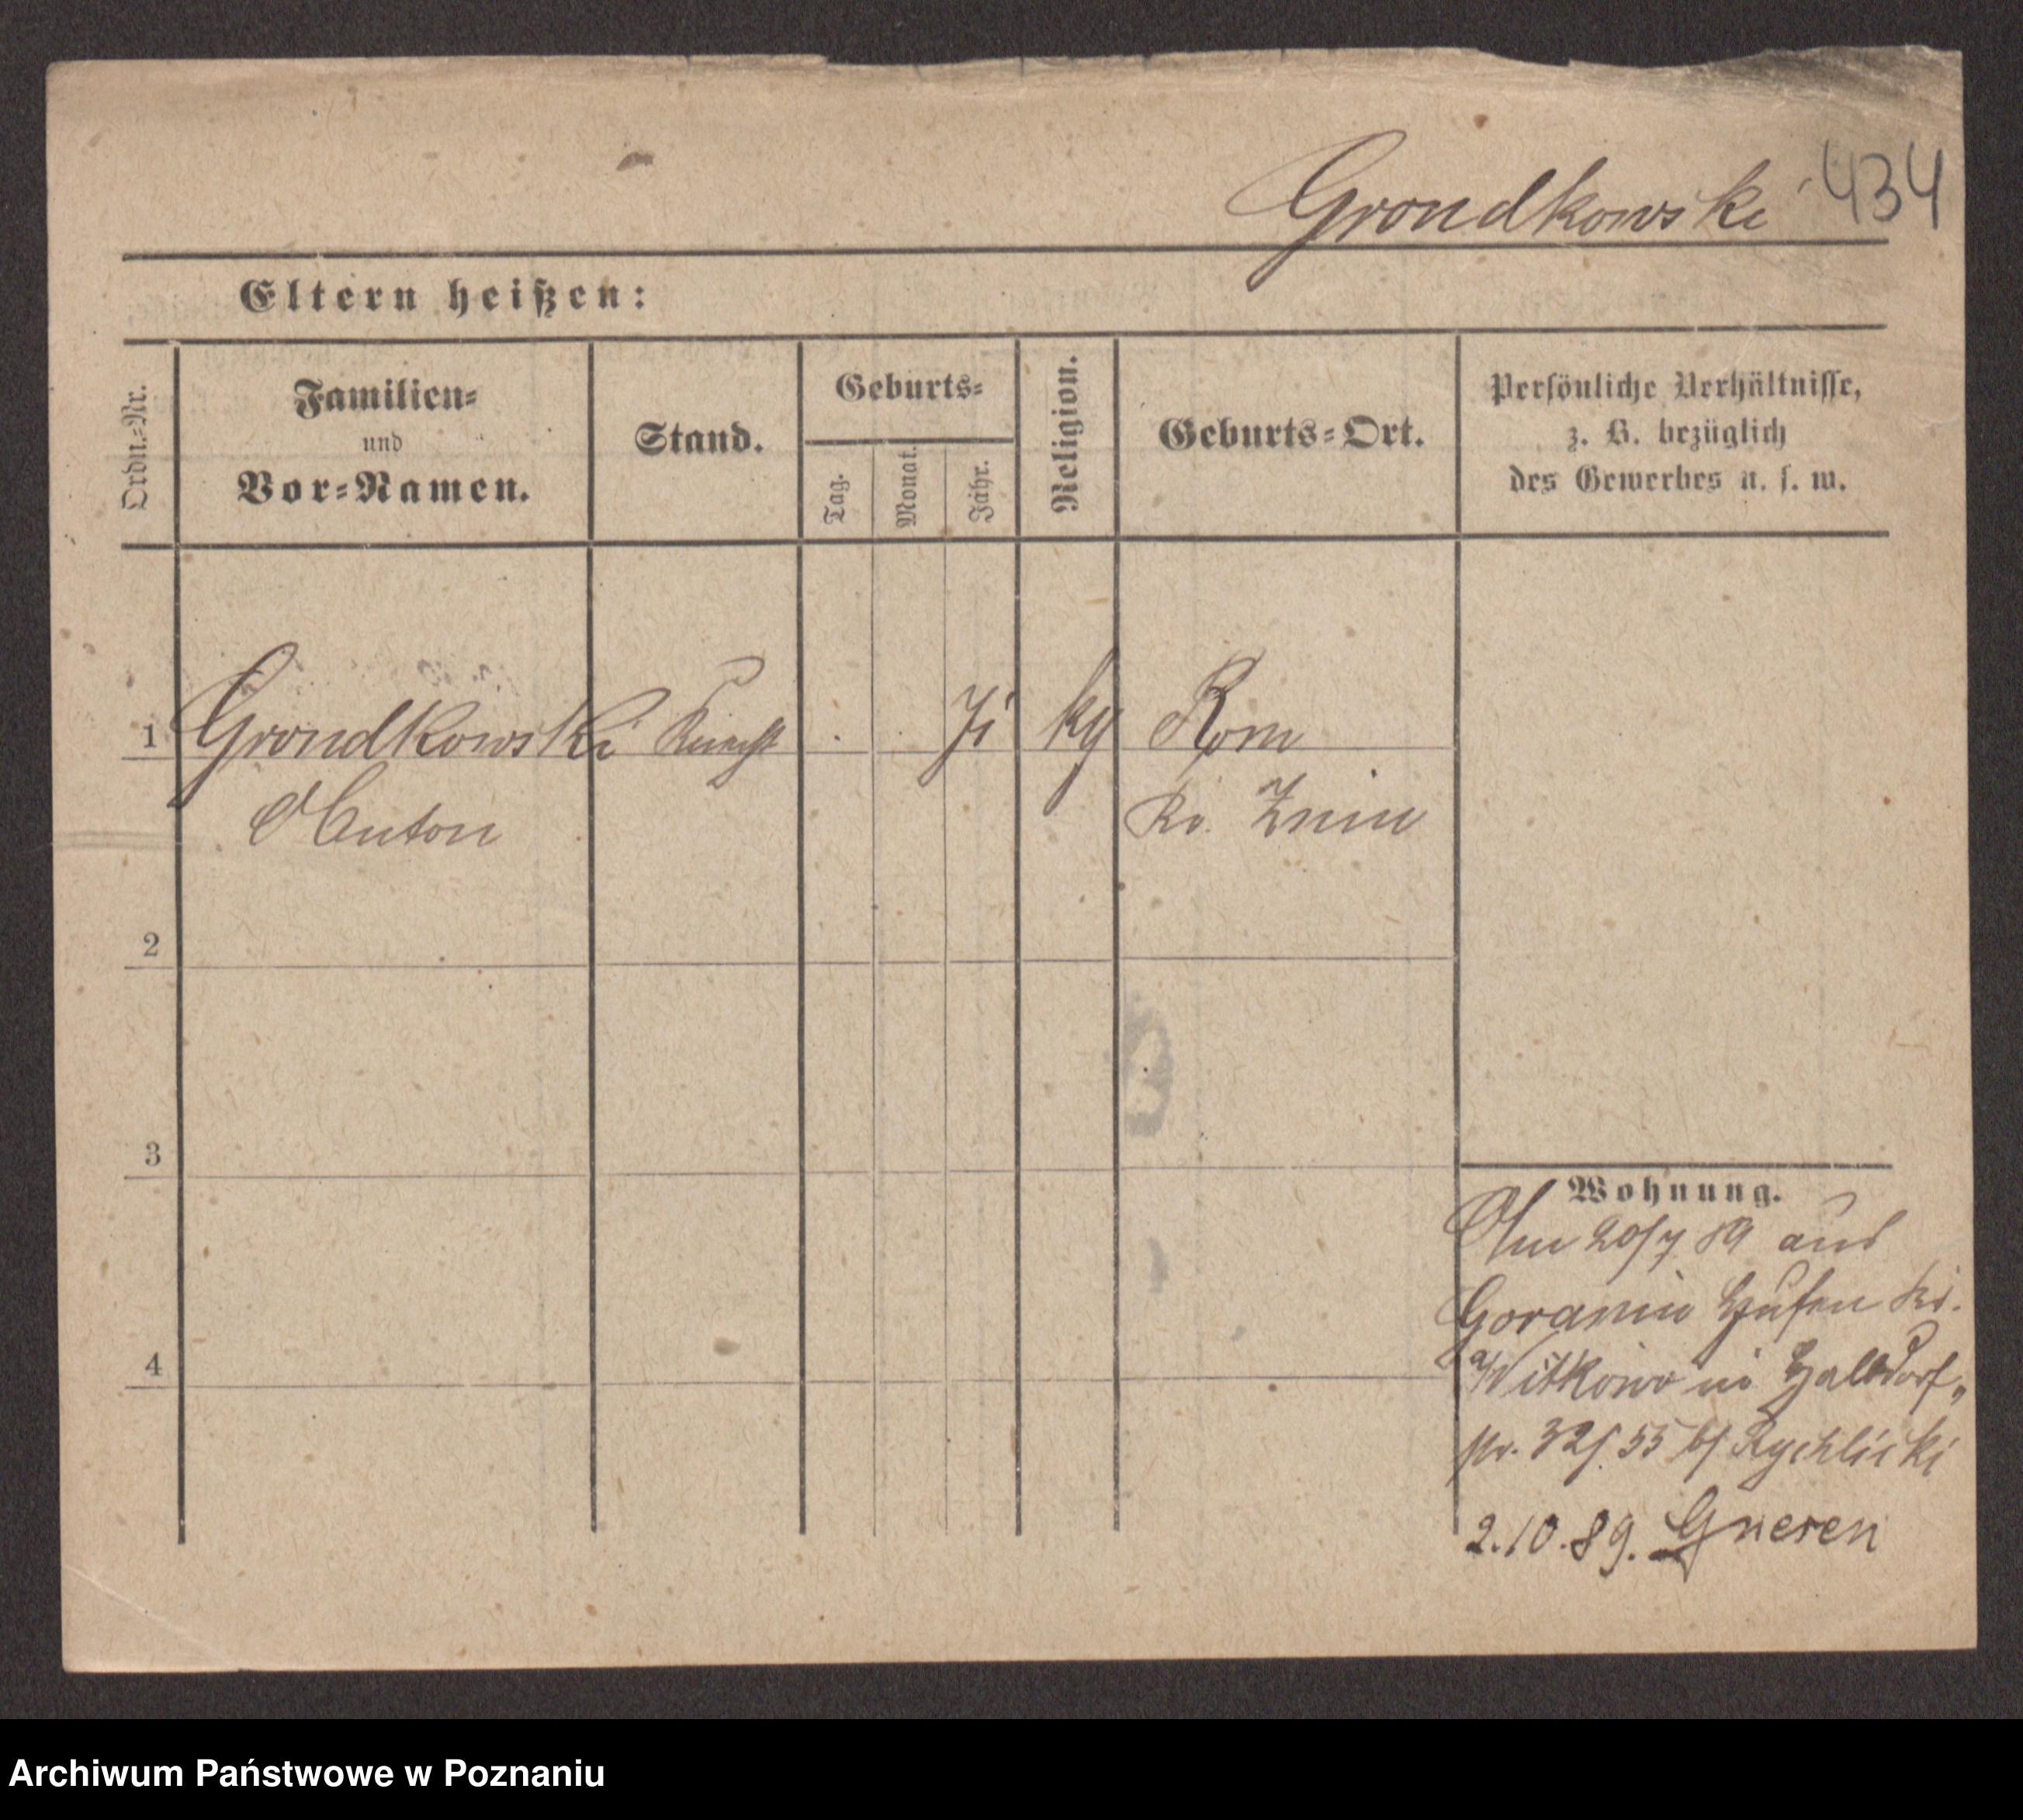 Grondkowski 434
Eltern heißen:
Ordn.-Nr.
Familien-
und
Vor-Namen.
Stand.
Geburts-
Tag.
Monat.
Jahr.
Religion.
Geburts-Ort.
Persönliche Verhältnisse,
z. B. bezüglich
des Gewerbes u. s. w.
1 Grondkowski Knecht kg Rom
Anton Kr. Znin
2
3
4
Wohnung.
Am 20/7 89 aus
Goranin Hufen Kr.
Witkowo in Halbdorf
str. 32/33 b/ Rychlicki
2.10.89. Gnesen
Archiwum Państwowe w Poznaniu